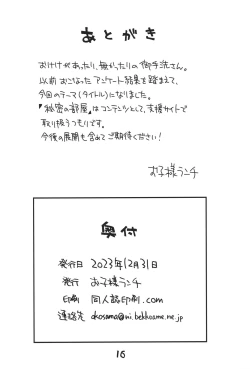 あとがき
おけけがあったり、無かったりの御手洗さん。
以前おこなったアンケート結果を踏まえて、
今回のテーマ(タイトル)になりました。
『秘密の部屋』はコンテンツとして、支援サイトで
取り扱うつもりです。
今後の展開も含めてご期待ください!
お子様ランチ
奥付
発行日 2023年12月31日
発行 お子様ランチ
印刷 同人誌印刷.com
連絡先 okosama@mi.bekkoame.ne.jp
16